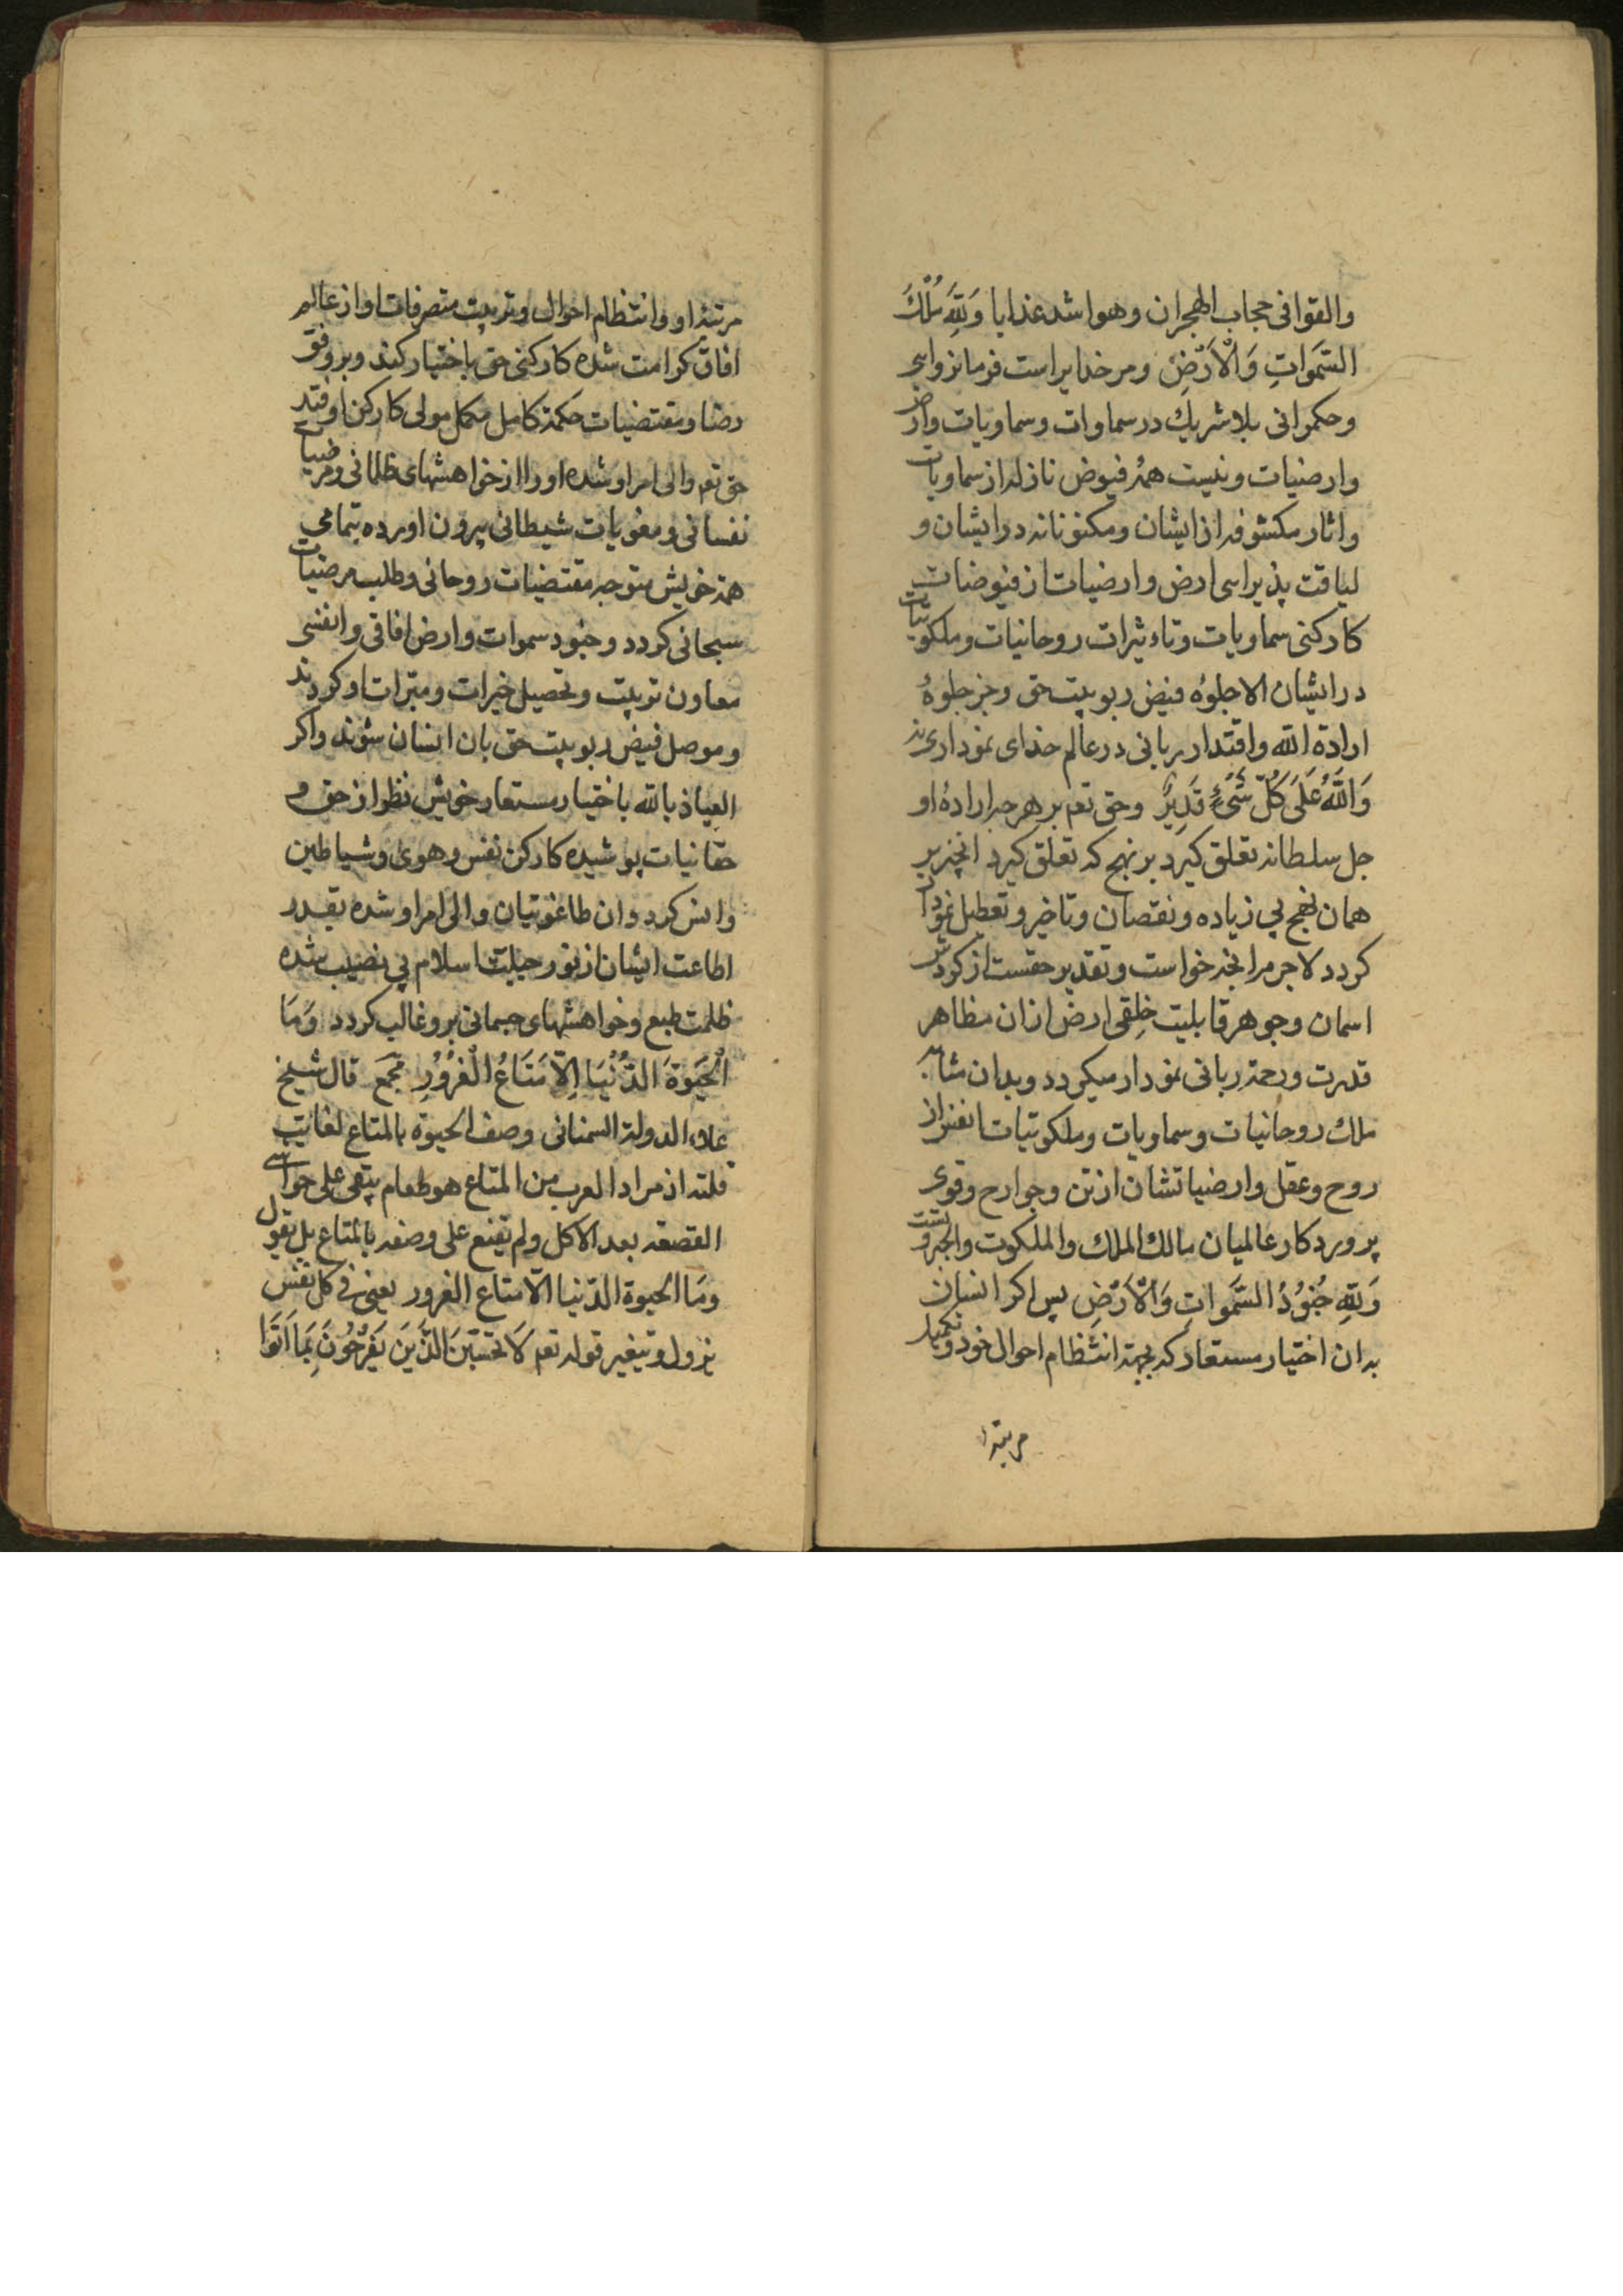 والقوا فی حجاب الهجران وهو اشد عذابا وَلِلّٰهِ مُلْكُ
السَّمَوَاتِ وَالْاَرْضِ ومر خدایراست فرمانروایی
وحکمرانی بلا شریك در سماوات وسماویات وارض
وارضیات ونیست همهٔ فیوض نازله از سماویات
واثار مکشوفه از ایشان ومکنونانه در ایشان و
لیاقت پذیرایی ارض وارضیات از فیوضات
کارکنی سماویات وتاءثیرات روحانیات وملکوتیات
در ایشان الا جلوهٔ فیض ربوبیت حق وجز جلوهٔ
ارادة الله واقتدار ربانی در عالم خدای نموداری ند
وَاللّٰهُ عَلَى كُلِّ شَىْءٍ قَدِيرٌ وحق تعم بر هر چه ارادهٔ او
جل سلطانه تعلق کیرد بر نهج که تعلق کیرد انچیز بر
همان نهج بی زیاده ونقصان وتاخیر وتعطیل نمودار
کردد لاجرم انچه خواست وتقدیر حقست از کردش
اسمان وجوهر قابلیت خلقی ارض ازان مظاهر
قدرت ورحمة ربانی نمودار میکردد وبدان مشابه
ملك روحانیات وسماویات وملکوتیات انفس از
روح وعقل وارضیاتشان از تن وجوارح وقوی
پروردکار عالمیان مالك الملك والملکوت والجبروتست
وَلِلّٰهِ جُنُودُ السَّمَوَاتِ وَالْاَرْضِ پس اکر انسان
بدان اختیار مستعار که بجهة انتظام احوال خود وتکمیل
مرتبهٔ
مرتبهٔ او وانتظام احوال وتربیت متصرفات او از عالم
افاق کرامت شده کارکنی حق باختیار کند وبر وفق
رضا ومقتضیات حکمة کامل مکمل مولی کارکن او فتد
حق تعم والی امر او شده او را از خواهشهای ظلمانی ومرضیات
نفسانی ومغویات شیطانی بیرون اورده بتمامی
همة خویش متوجه مقتضیات روحانی وطلب مرضیات
سبحانی کردد وجنود سموات وارض افاقی وانفسی
معاون تربیت وتحصیل خیرات ومبرات او کردند
وموصل فیض ربوبیت حق بان انسان شوند واکر
العیاذ بالله باختیار مستعار خویش نظر از حق و
حقانیات پوشیده کارکن نفس وهوی وشیاطین
وانس کردد وان طاغوتیان والی امر او شده بقدر
اطاعت ایشان از نور جبلیت اسلام بی نصیب شده
ظلمت طبع وخواهشهای جسمانی برو غالب کردد وَمَا
الْحَيَوةُ الدُّنْيَا اِلَّا مَتَاعُ الْغُرُورِ مجمع قال شیخ
علاء الدولة السمنانی وصف الحیوة بالمتاع لغایت
قلته اذ مراد العرب من المتاع هو طعام یبقی علی حواشی
القصعة بعد الاکل ولم یقنع علی وصفه بالمتاع بل یقول
وَمَا الحیوة الدّنیا الّا متاع الغرور یعنی فی کل نفس
یزول ویتغیر قوله تعم لَا تَحْسَبَنَّ الَّذِينَ يَفْرَحُونَ بِمَا اَتَوْا